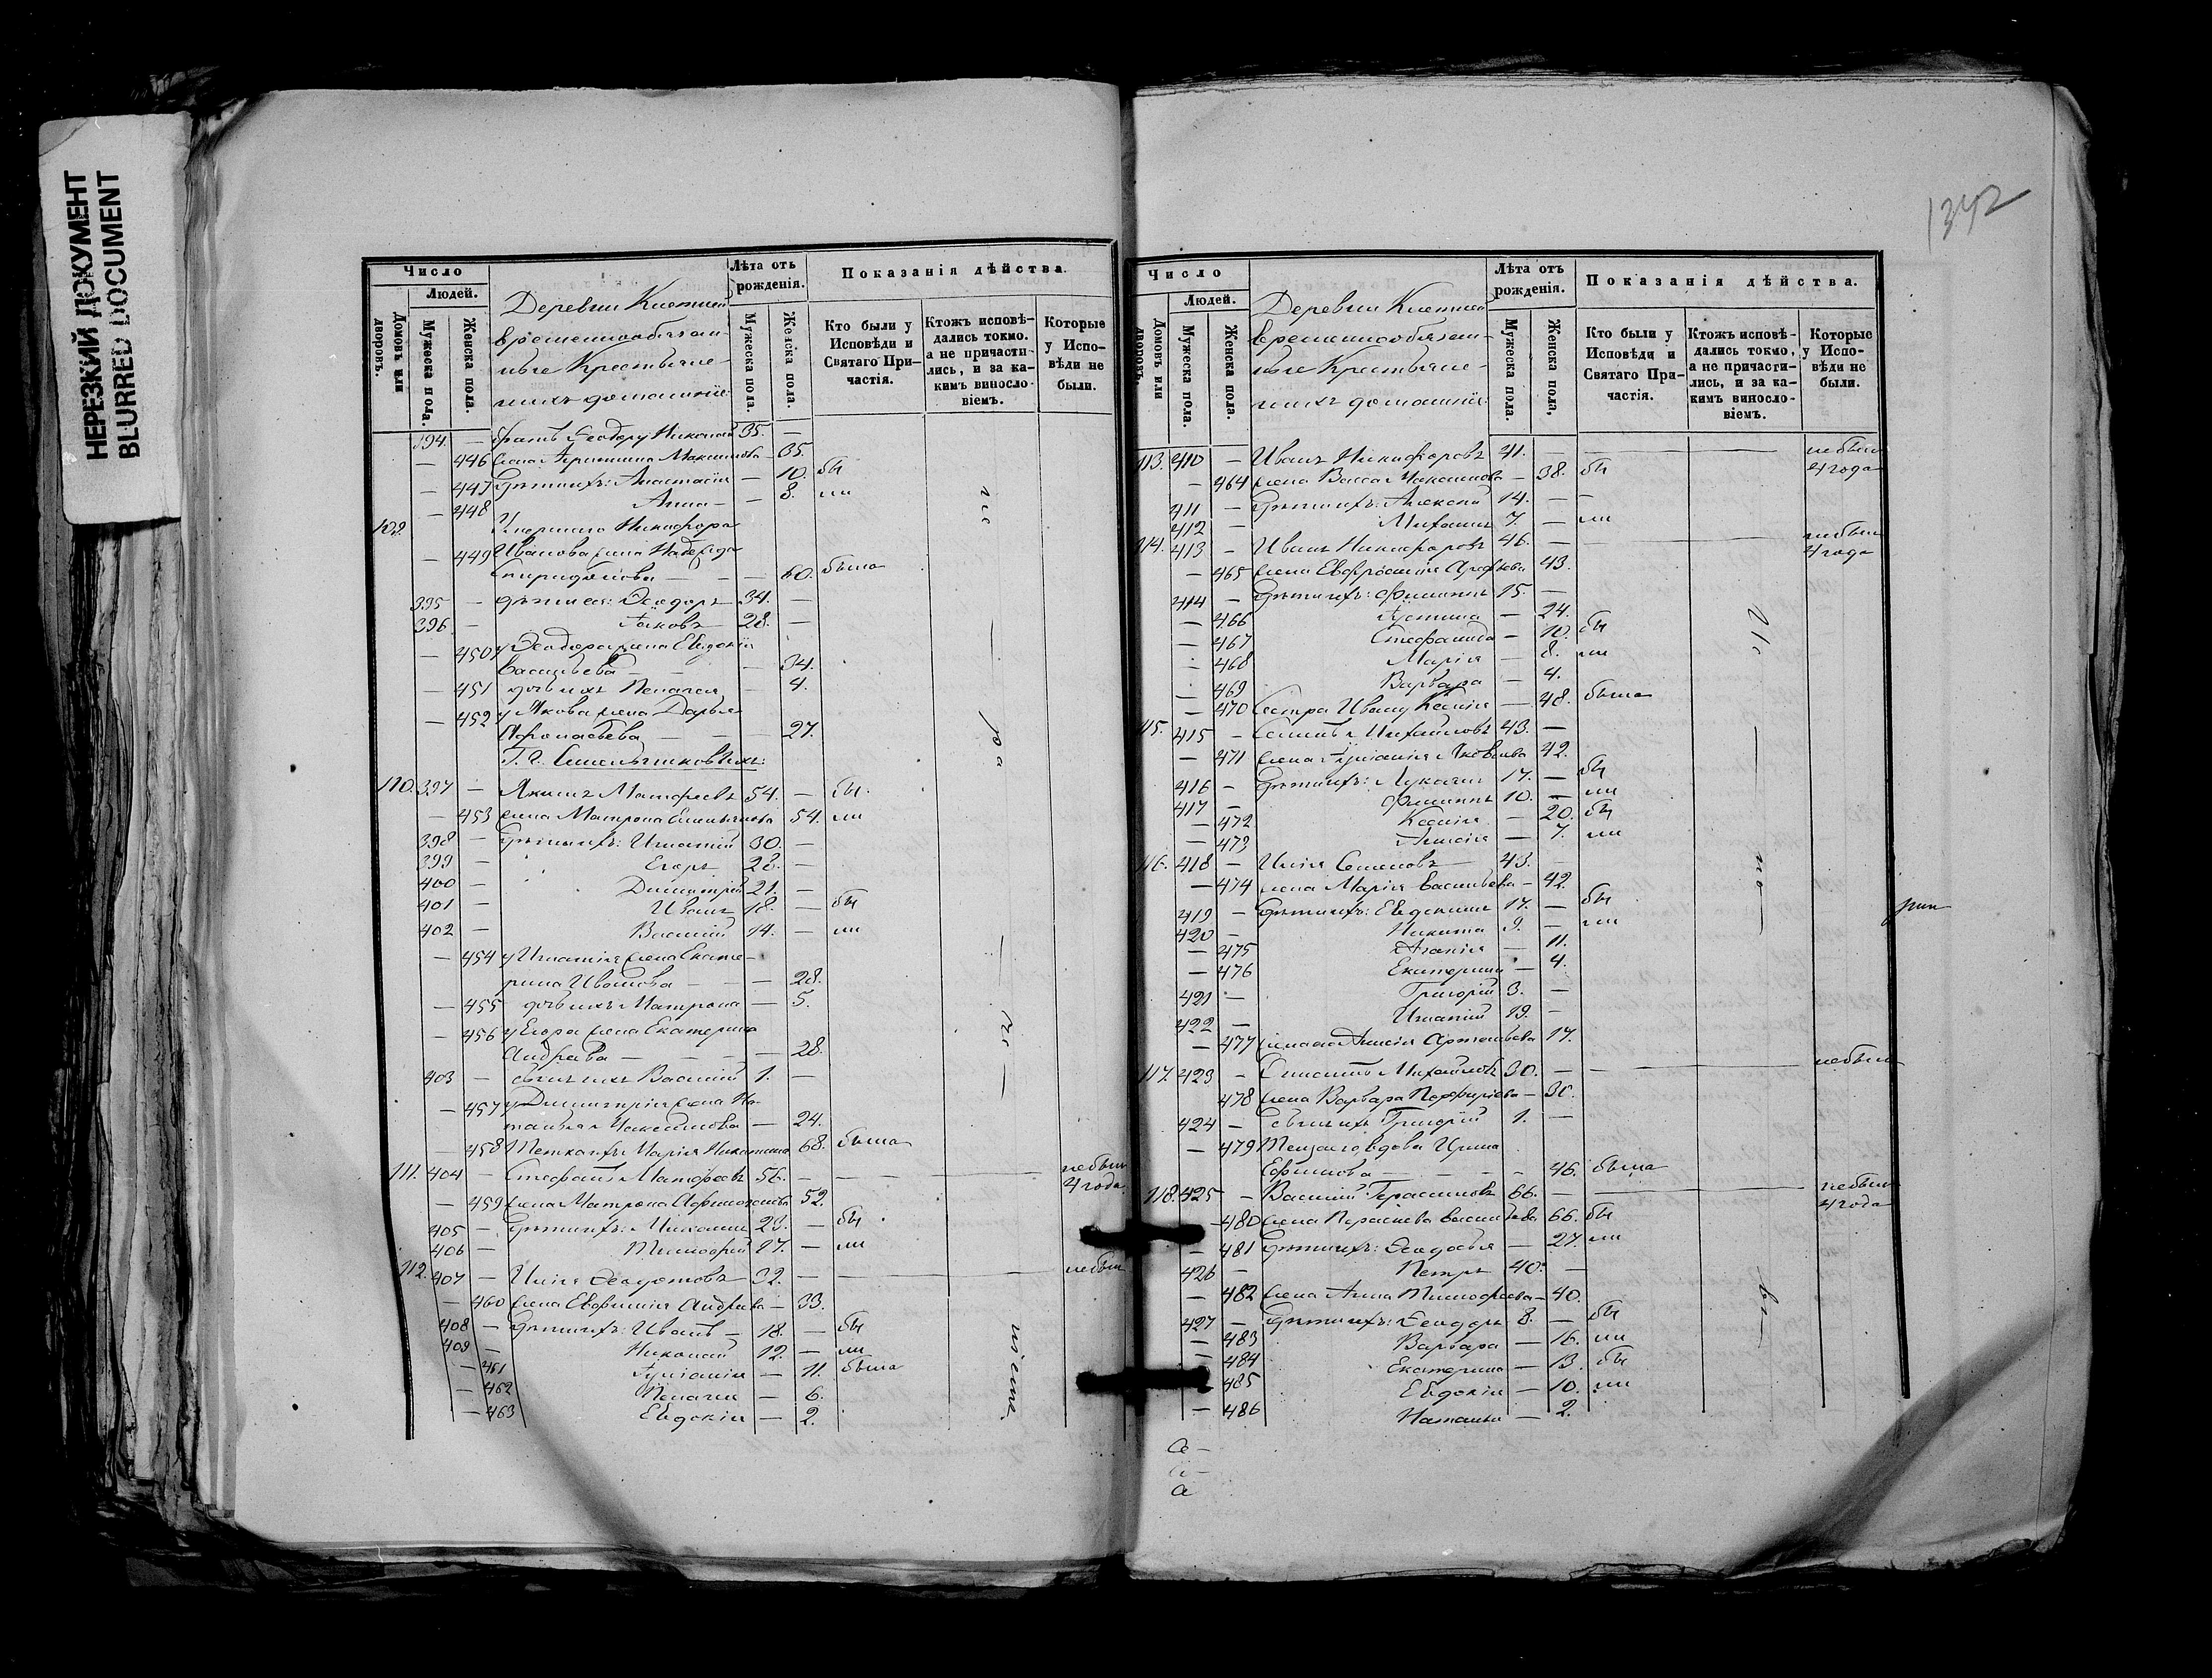 НЕРЕЗКИЙ ДОКУМЕНТ
BLURRED DOCUMENT
Число
Людей.
Домовъ или дворовъ.
Мужеска пола.
Женска пола.
Деревни
временнообязан-
ные Крестьяне
ихъ домашніе
Лѣта отъ рожденія.
Мужеска пола.
Женска пола.
Показанія дѣйства.
Кто были у Исповѣди и Святаго При-частія.
Ктожъ исповѣ-дались токмо, а не причасти-лись, и за ка-кимъ виносло-віемъ.
Которые у Испо-вѣди не были.
394. — братъ Ѳеодору Николай 35. —
— 446 жена Максимова — 35.
— 447 дѣти ихъ: Анастасія — 10. бы
— 448 Анна — 8. ли
109. Умершаго Никифора
— 449 Иванова жена Надежда
Спиридонова — — — 60. была
395 — дѣти ея: Ѳеодоръ 34. —
396. — Іаковъ 28. —
— 450 у Ѳеодора жена Евдокія
Васильева — — — 34.
— 451 дочь ихъ Пелагея — 4.
— 452 у Якова жена Дарья
— — — 27.
110. 397 — Матфеевъ 54. — бы
— 453 жена Матрона Емельянова 54. ли
398 — дѣти ихъ: Игнатій 30. —
399 — Егоръ 28. —
400 — Димитрій 21. —
401 — Иванъ 18. — бы
402 — Василій 14. — ли
— 454 у Игнатія жена Екате-
рина Иванова — — — 28.
— 455 дочь ихъ Матрона — 5.
— 456 у Егора жена Екатерина
Андреева — — — 28.
403 — сынъ ихъ Василій 1. —
— 457 у Димитрія жена На-
талья Максимова — 24.
— 458 Тетка ихъ Марія Никитина 68. была
111. 404 — Стефанъ Матфеевъ 56. — — не былъ 4 года
— 459 жена Матрона 52.
405 — дѣти ихъ: Михаилъ 23. — бы
406 — Тимофей 17. — ли
112. 407 — Илія Ѳедотовъ 32. — — не былъ
— 460 жена Евфимія Андреева — 33.
408 — дѣти ихъ: Иванъ — 18. — бы
409 — Николай 12. — ли
— 461 Іуліанія — 11. была
— 462 Пелагея — 6.
— 463 Евдокія — 2.
1342
Число
Людей.
Домовъ или дворовъ.
Мужеска пола.
Женска пола.
Деревни
временнообязан-
ные Крестьяне
ихъ домашніе
Лѣта отъ рожденія.
Мужеска пола.
Женска пола,
Показанія дѣйства.
Кто были у Исповѣди и Святаго При-частія.
Ктожъ исповѣ-дались токмо, а не причасти-лись, и за ка-кимъ виносло-віемъ.
Которые у Испо-вѣди не были.
113. 410 — Иванъ Никифоровъ 41. — — не былъ 4 года
— 464 жена Васса Максимова — 38. бы
411 — дѣти ихъ: Алексей 14. —
412 — Михаилъ 7. — ли
114. 413 — Иванъ Никифоровъ 46. — — не былъ 4 года
— 465 жена Евфросинія 43.
414 — дѣти ихъ: Филиппъ 15. —
— 466 Іустина — 24.
— 467 Стефанида — 10. бы
— 468 Марія — 8. ли
— 469 Варвара — 4.
— 470 Сестра Ивану Ксенія — 48. была
115. 415 — Михайловъ 43. —
— 471 жена Іуліанія Яковлева 42.
416 — дѣти ихъ: 17. — бы
417 — Филиппъ 10. — ли
— 472 Ксенія — 20. бы
— 473 Анисія — 7. ли
116. 418 — Илія Семеновъ — 43. —
— 474 жена Марія Васильева — 42.
419 — дѣти ихъ: Евдокимъ 17. — бы
420 — Никита 9. — ли
— 475 — 11.
— 476 Екатерина — 4.
421 — Григорій 3. —
422 — Игнатій 19. —
— 477 жена его Анисія 17.
117. 423 — Михайловъ 30. — — не былъ
478 жена Варвара Порфирьева — 30.
424 — Сынъ ихъ Григорій 1. —
— 479 Теща его вдова Ирина
Ефимова — — — 46. была
118. 425 — Василій Герасимовъ 66. — — не былъ 4 года
— 480 жена Васильева 66. бы
— 481 дѣти ихъ: Ѳеодосья — 27. ли
426 — Петръ 40. —
— 482 жена Анна Тимофеева — 40.
427 — дѣти ихъ: Ѳеодоръ 8. — бы
— 483 Варвара — 16. ли
— 484 Екатерина — 13. бы
— 485 Евдокія — 10. ли
— 486 Наталья — 2.